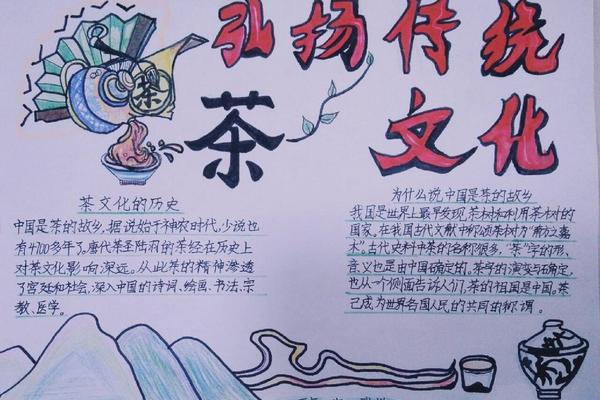 弘扬传统
茶
文化
茶
茶文化的历史
中国是茶的故乡,据说始于神农时代,少说也
有4700多年了。唐代茶圣陆羽的茶经在历史上
对茶文化影响深远。从此茶的精神渗透
了宫廷和社会,深入中国的诗词、绘画、书法、宗
教、医学。
为什么说中国是茶的故乡
我国是世界上最早发现茶树和利用茶树的
国家,在我国古代文献中称颂茶树为"南方之嘉
木"古代史料中茶的名称很多,"茶"字的形、
音、义也是由中国确定的。茶字的演变与确定,
也从一个侧面告诉人们,茶的祖国是中国。茶
已成为世界各国人民的共同的称谓。